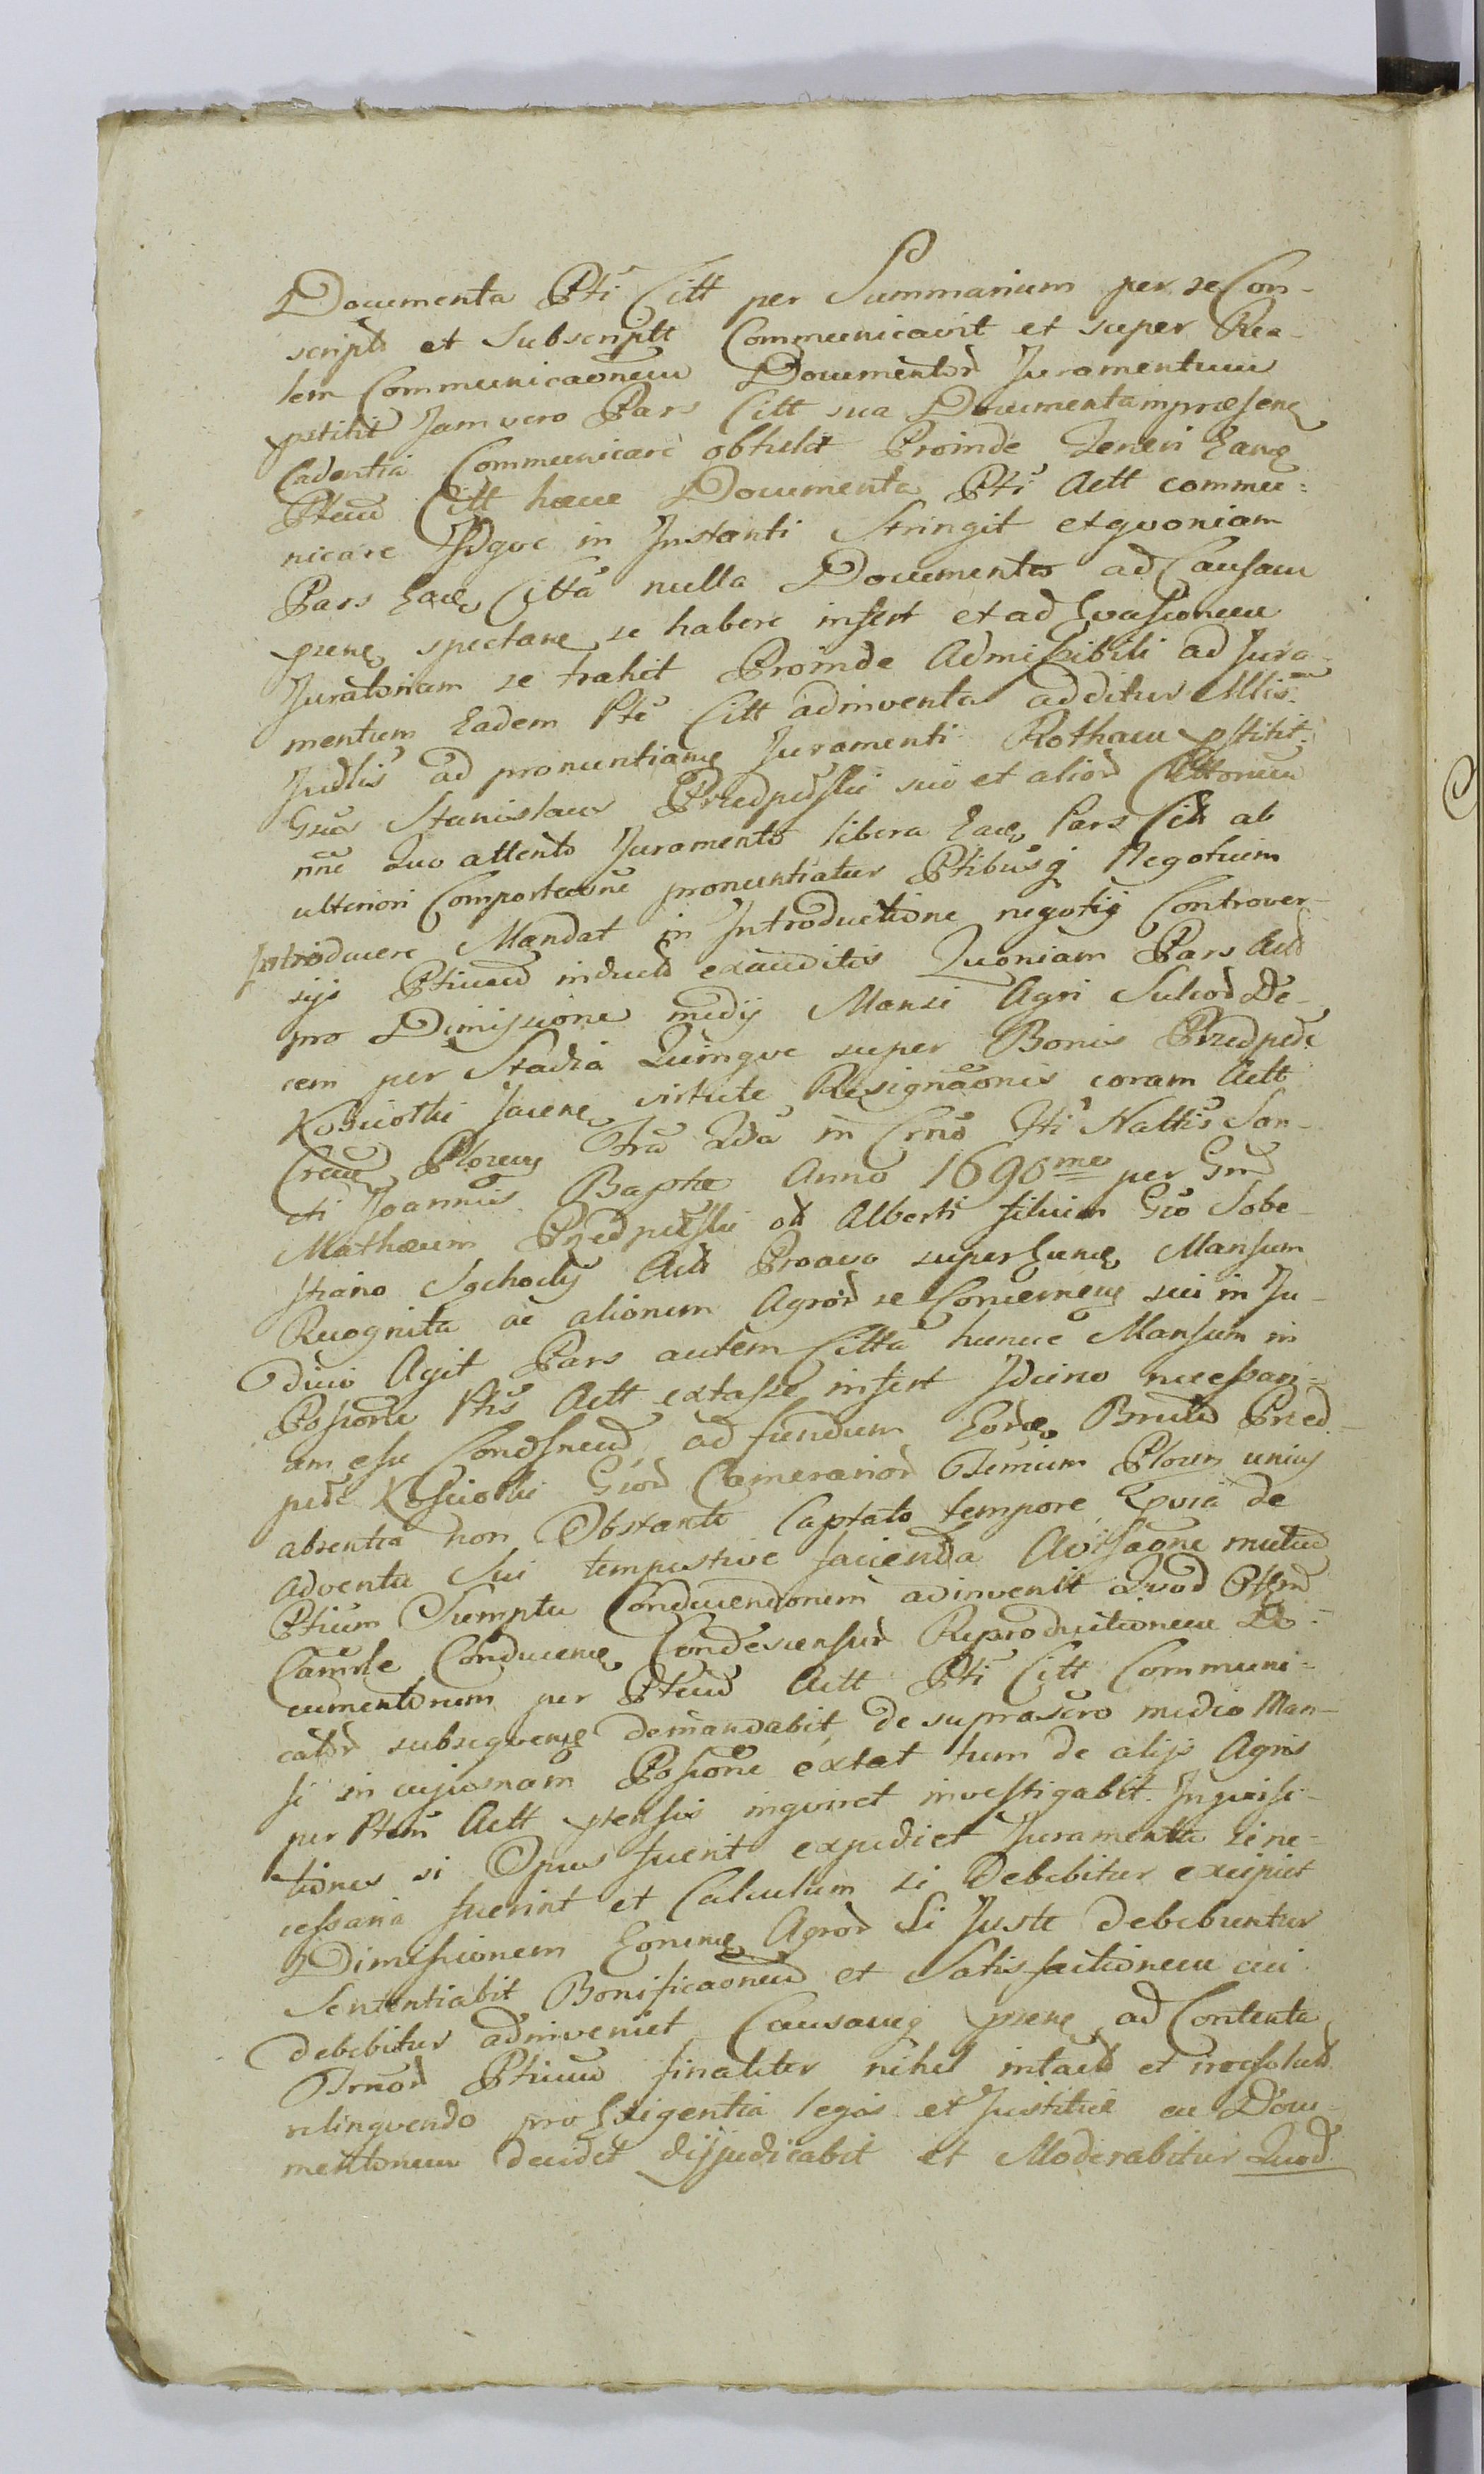 Documenta Pti Citt per Summarium per se Con-
scripta et Subscriptt Communicavit et super Rea-
lem Communicaonem Documentor Juramentum
pstitit Jam vero Pars Citt sua Documenta in præsene
Cadentia Communicare obtulit Proinde Teneri hanc
Ptem Citt hæce Documenta Pti Actt commu-
nicare Idque in Instanti Stringit et quoniam
Pars hæc Citta nulla Documenta ad Causam
psene spectane se habere infert et ad Evasionem
Juratoriam se trahit Proinde Admissibili ad Jura-
mentum Eadem Pte Citt adinventa additur Mlis
Judlis ad pronuntiane Juramenti Rotham pstitit
Gsus Stanislaus suo et alior Cittorum
nne Quo attento Juramento libera hæc Pars Citt ab
ulteriori Comportaone pronuntiatur Ptibusq Negotium
Introducere Mandat in Introductione negotij Controver-
sijs Ptium inductis exauditis Quoniam Pars Act
pro Dimissione medij Mansi Agri Sulcor De-
cem per Stadia Quinque super Bonis Przedpeł
Kosciołki Jacene virtute Resignaonis coram Actt
Crem Plocens Fra 2da in Crno Fti Nattis San-
cti Joannis Baptæ Anno 1696me per Gnd
Mathæum olt Alberti filium Gso Seba-
stiano Sochocki Act Proavo super hunc Mansum
Recognita ac aliorum Agror se Concernene sui in Ju-
dicio Agit Pars autem Citta hunce Mansum in
Possione Ptis Actt extasse infert Idcirco necessari-
am esse Condsnem ad fundum Eorde Bnrum Przed-
peł Kosciołki Gsor Camerarior Temium Plocen unius
absentia non Obstante Captato tempore Ipsia de
adventu Sui tempestive facienda Avisaone mutuo
Ptium Sumptu Conducendorum adinvenit Quod Offm
Camrle Conducene Condescensur Reproductionem Do-
cumentorum per Ptem Actt Pti Citt Communi-
cator subsequene demandabit, de suprascro medio Man-
si in cujusnam Possione extat tum de alijs Agris
per Ptem Actt ptensis inquiret investigabit. Inquisi-
tiones si Opus fuerit expediet Juramenta si ne-
cessaria fuerint et Calculum si Debebitur excipiet
Dimissionem Eorune Agror Si Juste debebuntur
Sententiabit Bonificaonem et Satisfactionem cui
debebitur adinveniet Causamq psene ad Contenta
Trnor Ptium finaliter nihil intact et irresolut
relinquendo pro Exigentia legis et Justitiæ ex Docu-
mentorum decidet dijudicabit et Moderabitur Quod